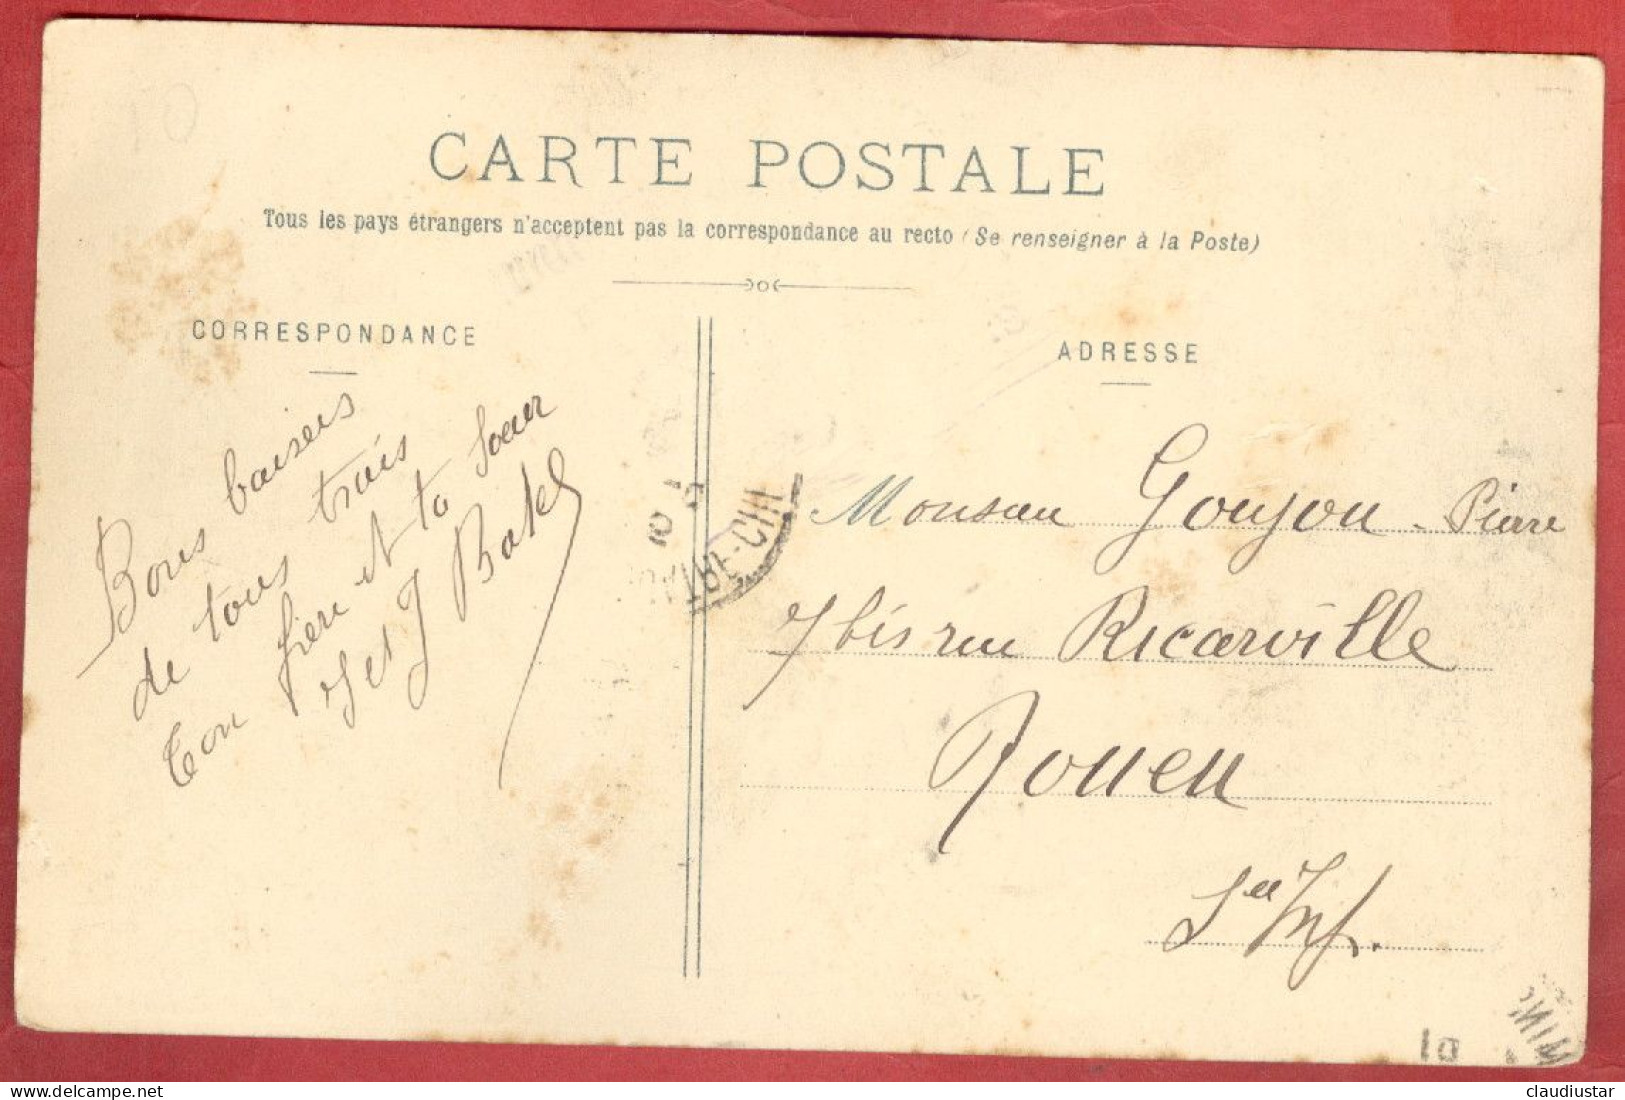 CARTE POSTALE
Tous les pays étrangers n'acceptent pas la correspondance au recto (Se renseigner à la Poste)
CORRESPONDANCE
ADRESSE
Bons baisers
de tous trois
ton frère et ta sœur
J et J Batel
Monsieur Goujon - Pierre
7 bis rue Ricarville
Rouen
Sne Inf.
10
claudiustar